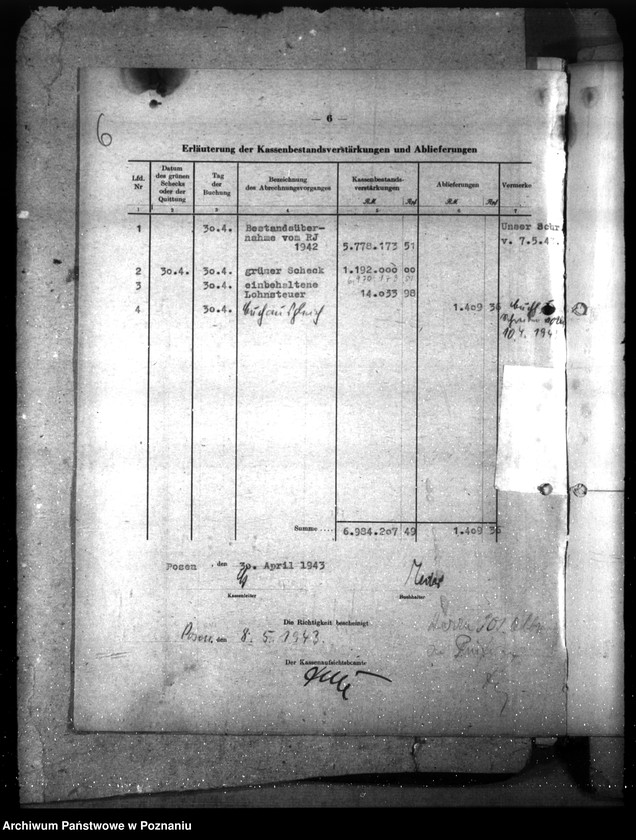 6
— 6 —
Erläuterung der Kassenbestandsverstärkungen und Ablieferungen
Lfd. Nr
Datum des grünen Schecks oder der Quittung
Tag der Buchung
Bezeichnung des Abrechnungsvorganges
Kassenbestands-verstärkungen
RM Rpf
Ablieferungen
RM Rpf
Vermerke
1 2 3 4 5 6 7
1 30.4. Bestandsüber-
nahme vom RJ
1942 5.778.173 51
Unser Schr
v. 7.5.4
2 30.4. 30.4. grüner Scheck 1.192.000 00
3 30.4. einbehaltene
Lohnsteuer 14.033 98
4 30.4. 1.409 36
Summe .... 6.984.207 49 1.409 36
Posen , den 30. April 1943
Kassenleiter Buchhalter
Die Richtigkeit bescheinigt
Posen, den 8. 5. 1943.
Der Kassenaufsichtsbeamte
Archiwum Państwowe w Poznaniu